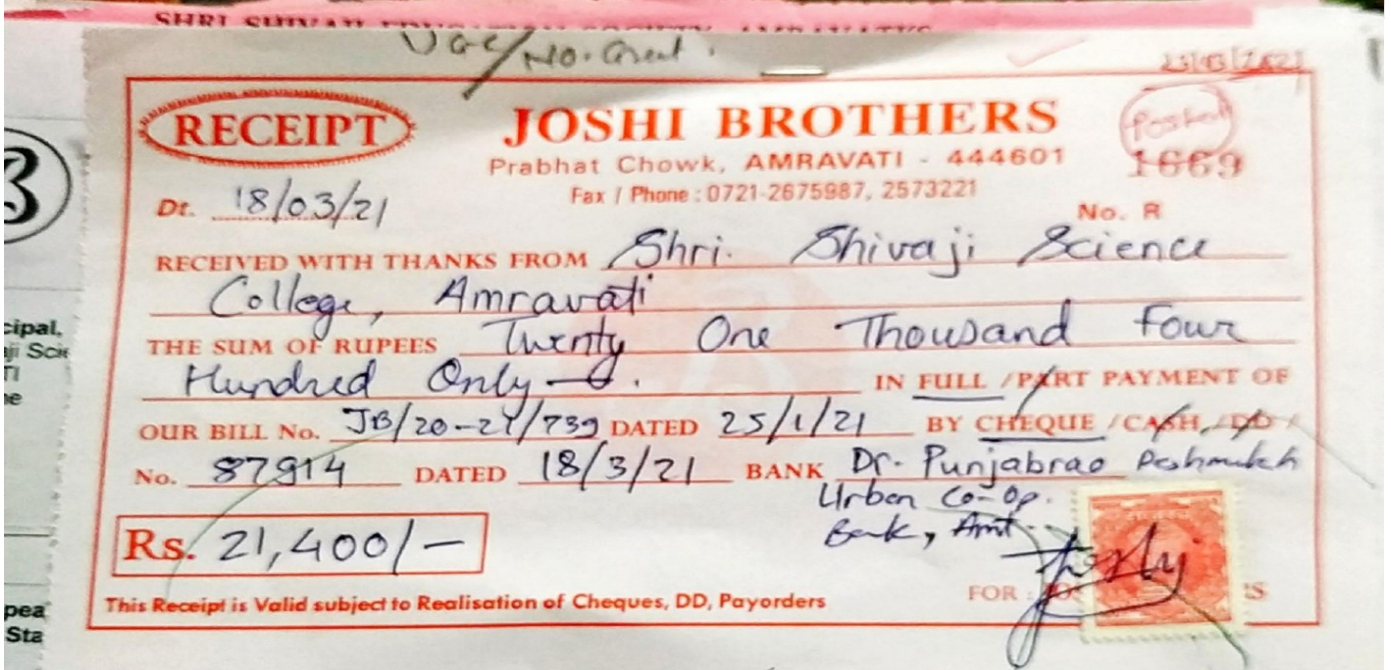 SHRI SHIVAJI EDUCATION SOCIETY, AMRAVATI'S
UGC/No. Grant.
23/03/2021
RECEIPT
JOSHI BROTHERS
Posted
Prabhat Chowk, AMRAVATI - 444601
1669
Fax / Phone : 0721-2675987, 2573221
Dt. 18/03/21
No. R
RECEIVED WITH THANKS FROM Shri. Shivaji Science
College, Amravati
THE SUM OF RUPEES Twenty One Thousand Four
Hundred Only IN FULL / PART PAYMENT OF
OUR BILL No. JB/20-21/739 DATED 25/1/21 BY CHEQUE / CASH, DD /
No. 87914 DATED 18/3/21 BANK Dr. Punjabrao Deshmukh
Urban Co-Op.
Bank, Amt.
Rs. 21,400/-
This Receipt is Valid subject to Realisation of Cheques, DD, Payorders
FOR :
cipal,
ji Scie
TI
ne
pea
Sta
3